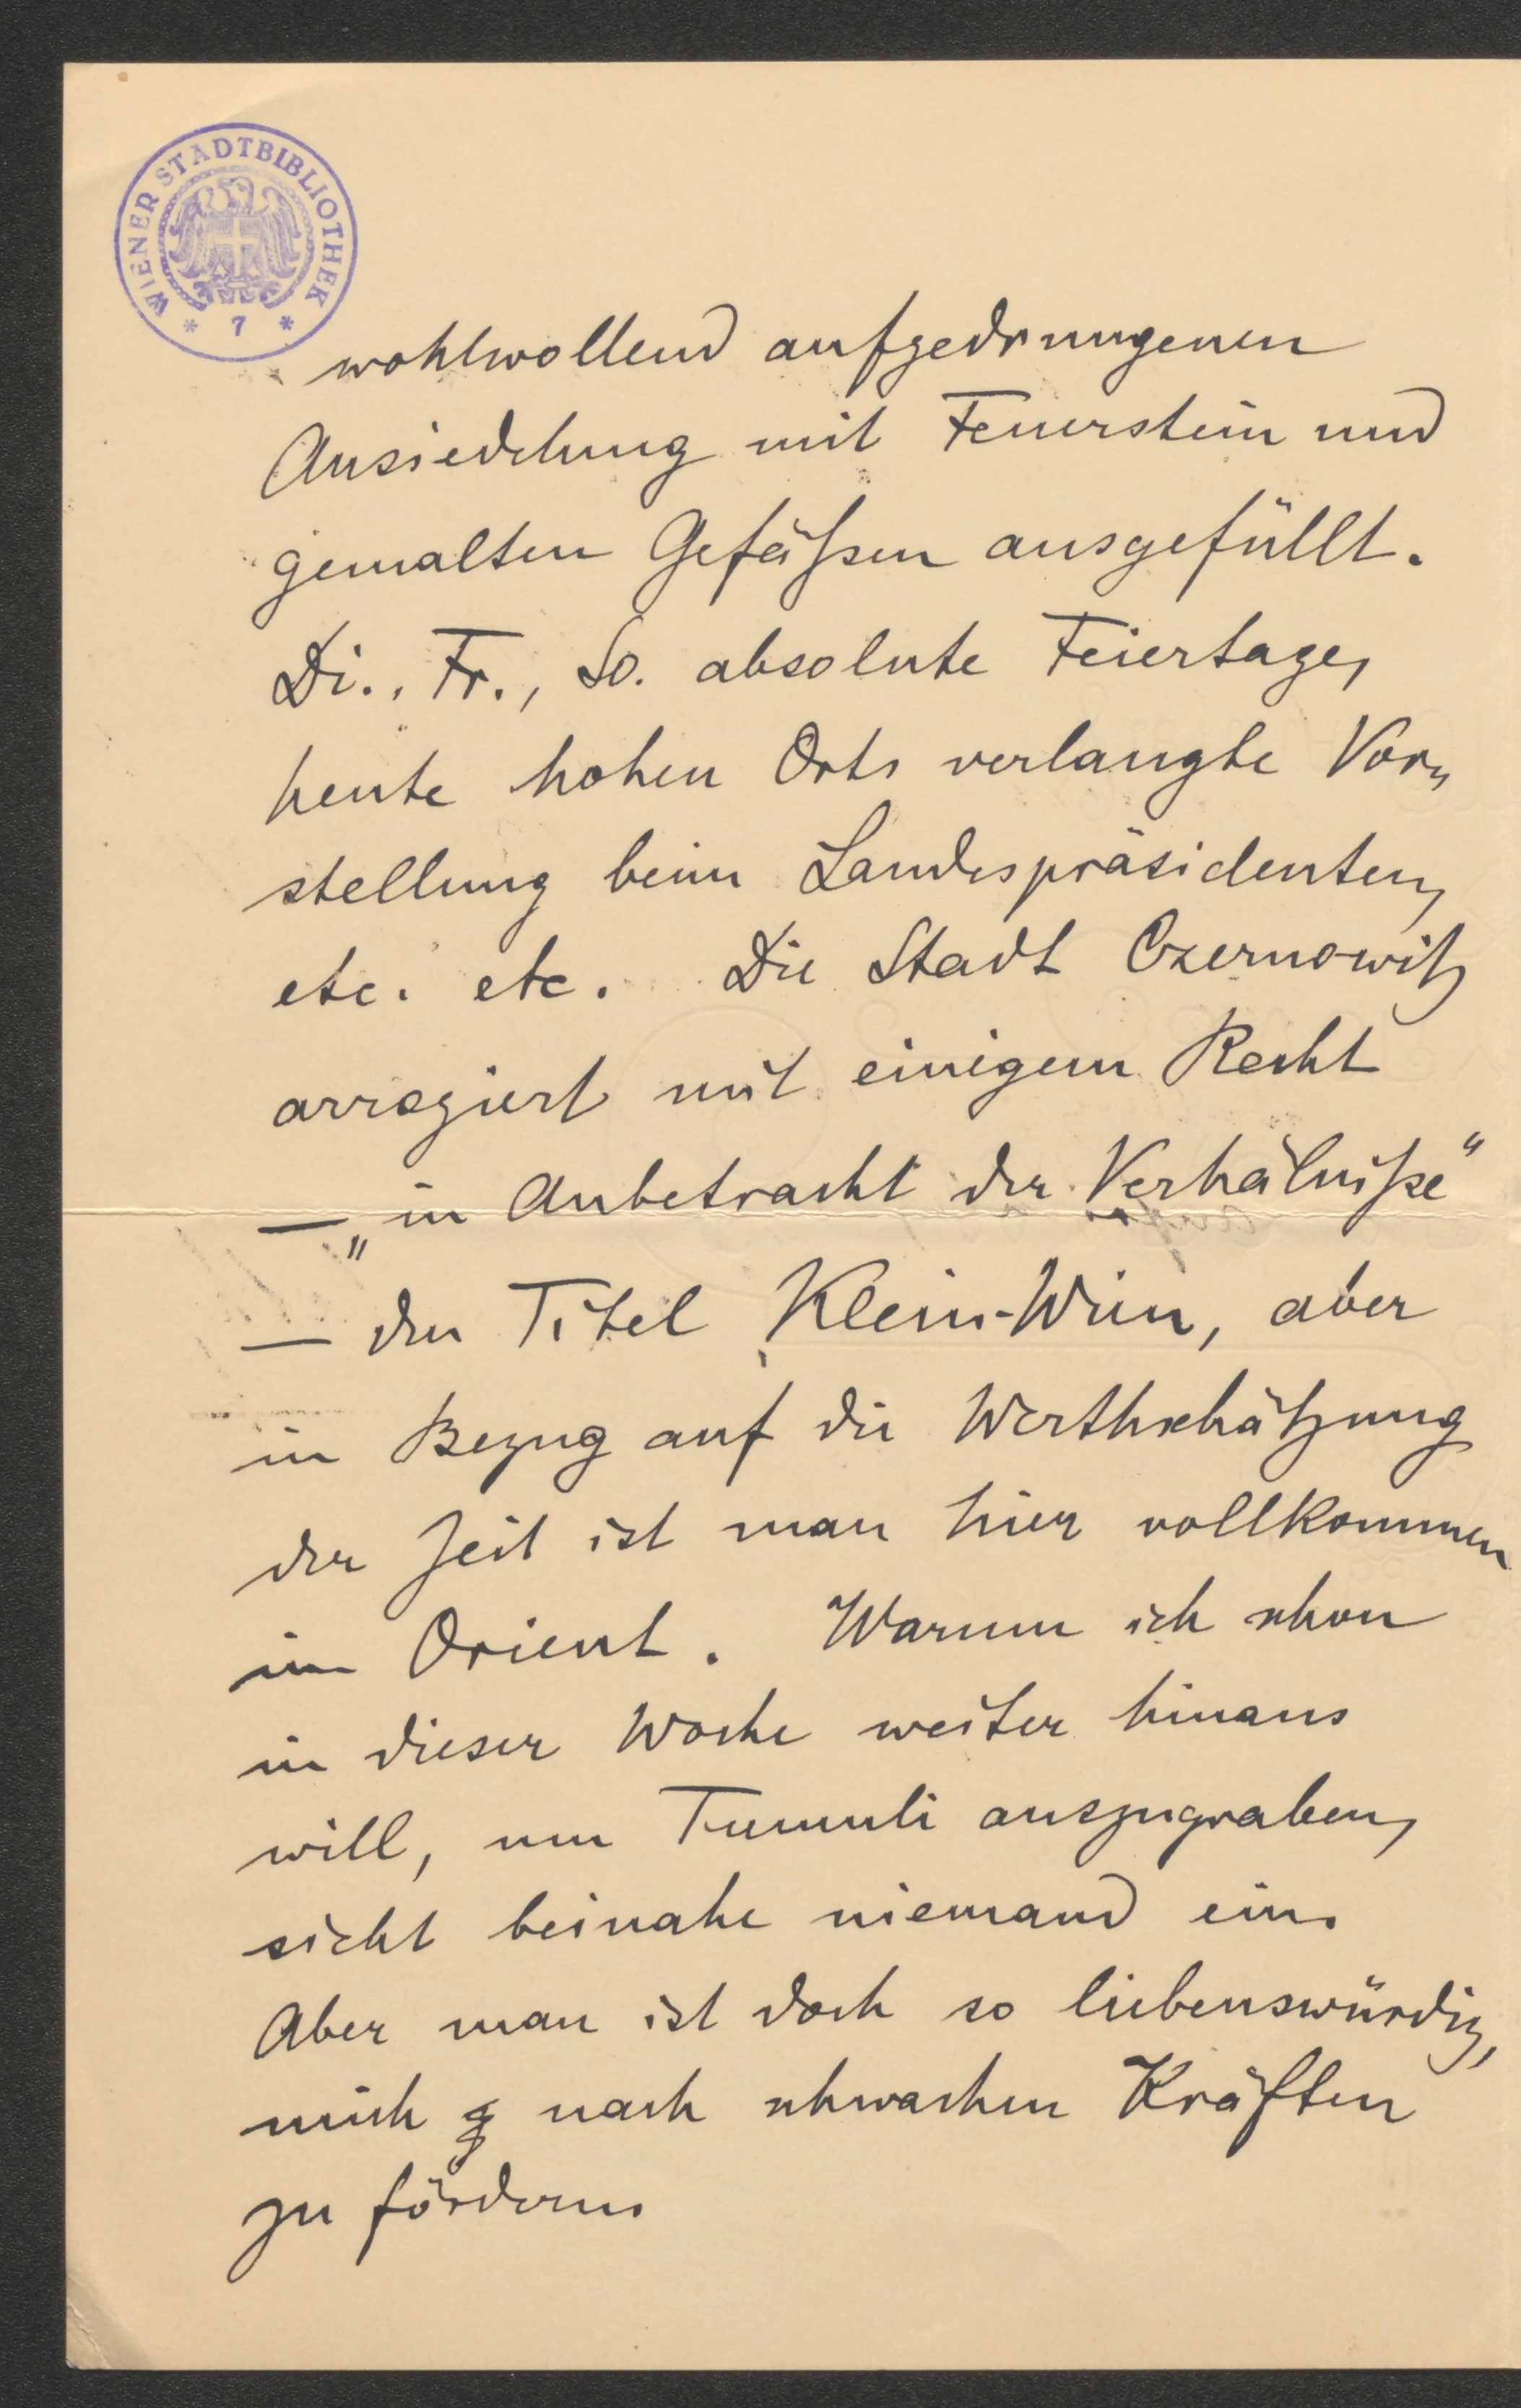 WIENER STADTBIBLIOTHEK
* 7 *
wohlwollend aufgedrungenen
Ansiedelung mit Feuerstein und
gemalten Gefäßen ausgefüllt.
Di., Fr., So. absolute Feiertage,
heute hohen Orts verlangte Vor„
stellung beim Landespräsidenten,
etc. etc. Die Stadt Czernowitz
arrogiert mit einigem Recht
– „in Anbetracht der Verhälniße“
– den Titel Klein-Wien, aber
in Bezug auf die Werthschätzung
der Zeit ist man hier vollkommen
im Orient. Warum ich schon
in dieser Woche weiter hinaus
will, um Tumuli auszugraben,
sieht beinahe niemand ein.
Aber man ist doch so liebenswürdig,
mich nach schwachen Kräften
zu fördern.